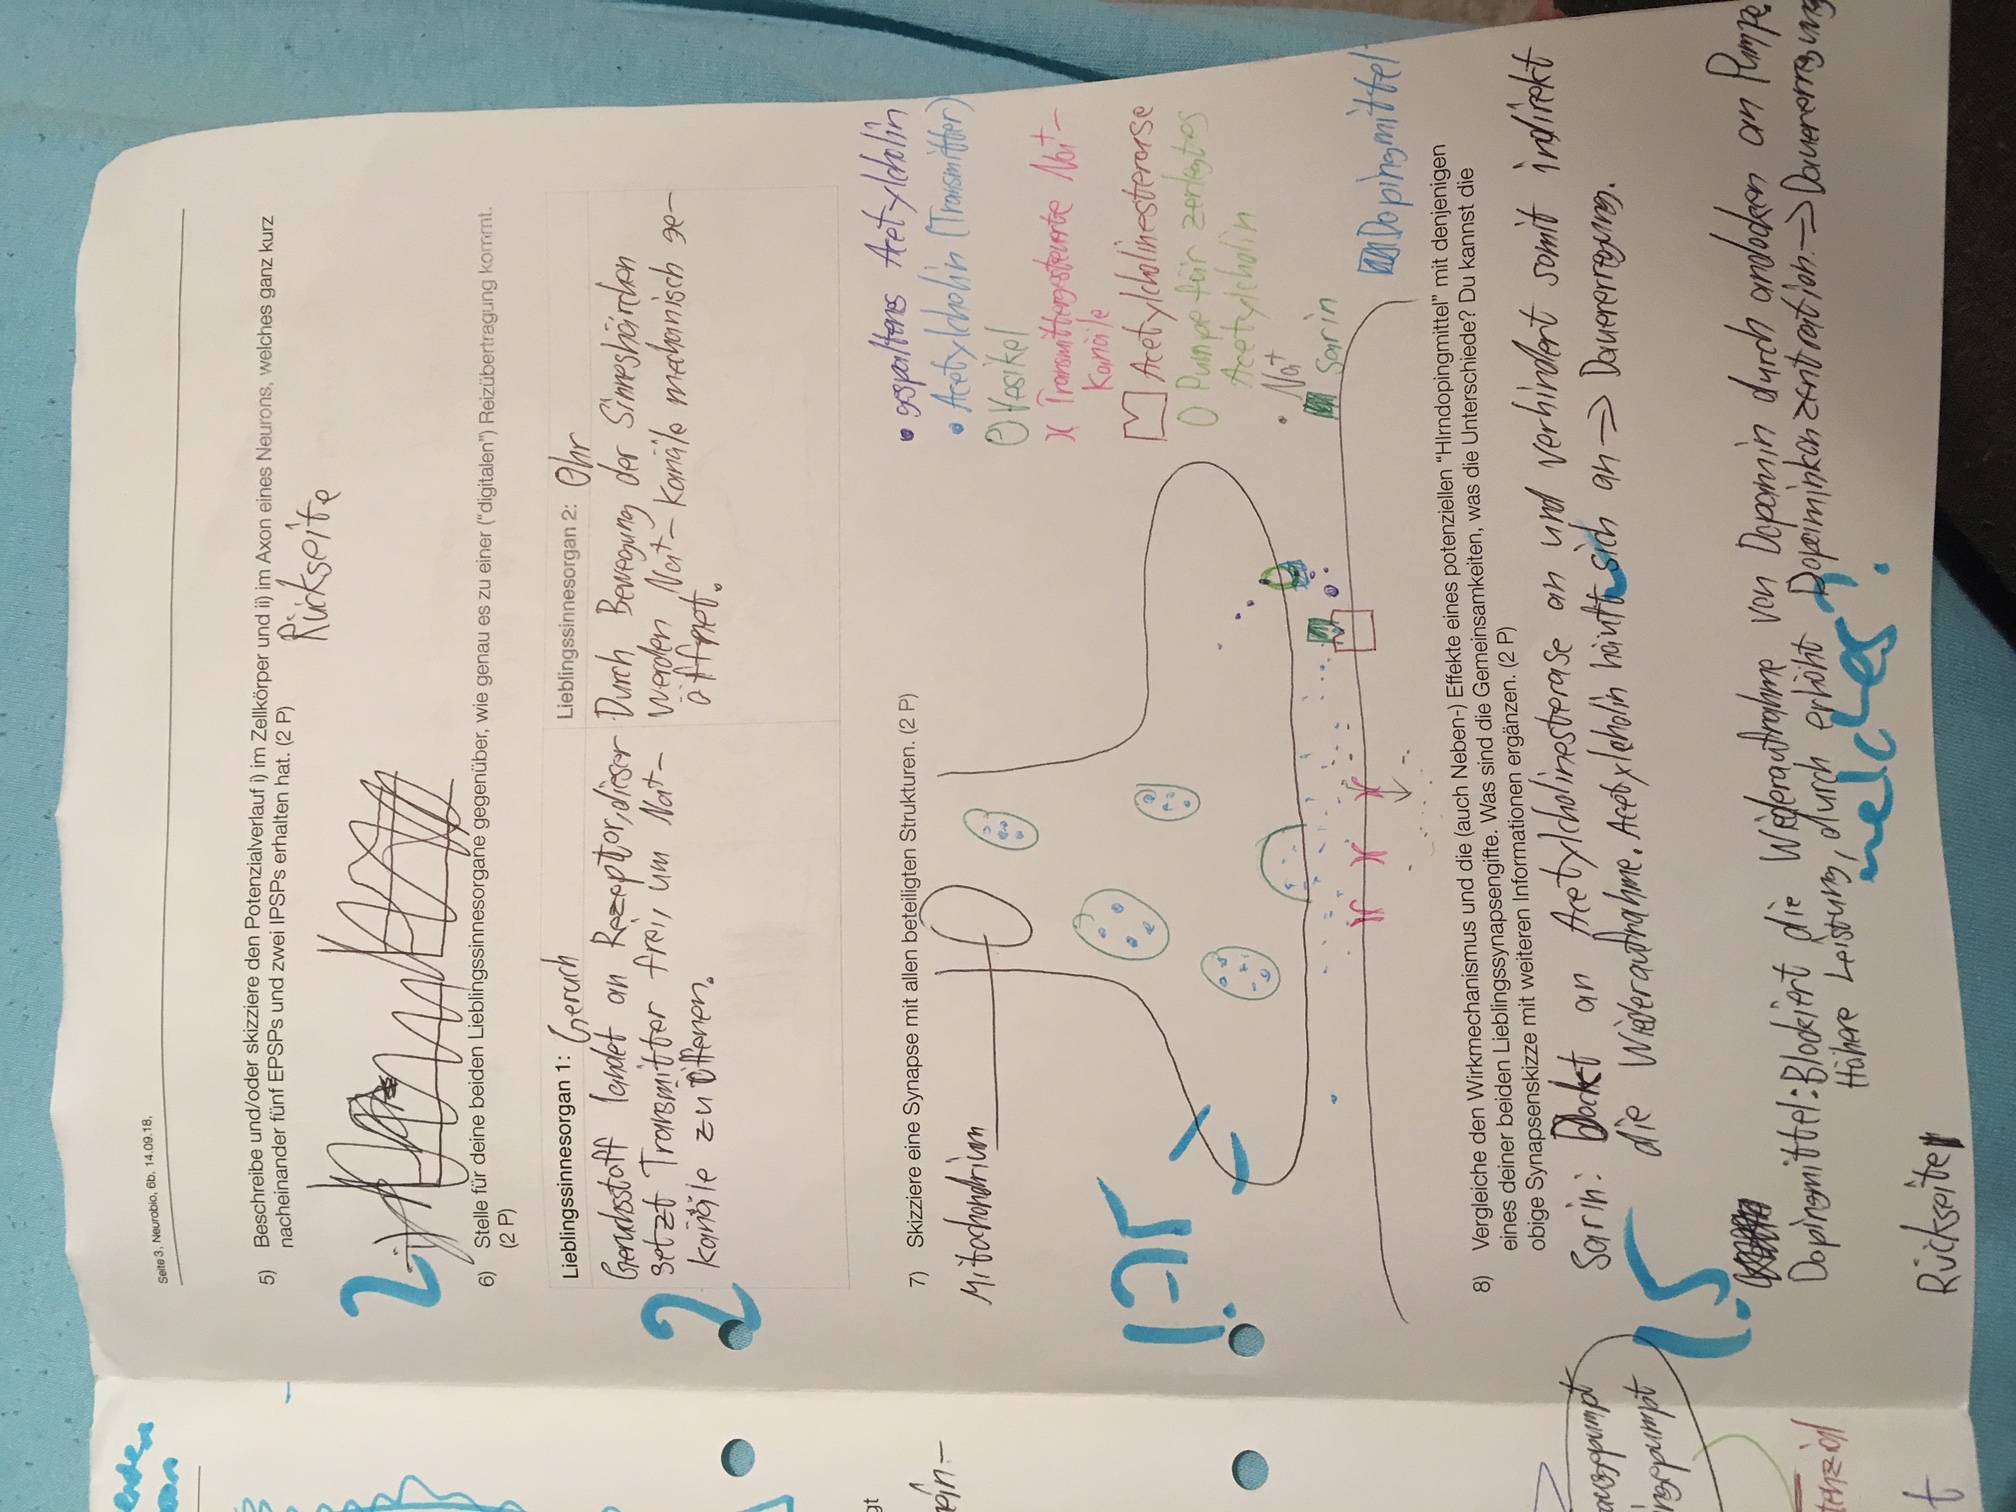 Seite 3, Neurobio, 6b, 14.09.18,
5) Beschreibe und/oder skizziere den Potenzialverlauf i) im Zellkörper und ii) im Axon eines Neurons, welches ganz kurz
nacheinander fünf EPSPs und zwei IPSPs erhalten hat. (2 P)
Rückseite
2
6) Stelle für deine beiden Lieblingssinnesorgane gegenüber, wie genau es zu einer ("digitalen") Reizübertragung kommt.
(2 P)
Lieblingssinnesorgan 1: Geruch
Geruchsstoff landet an Rezeptor, dieser
setzt Transmitter frei, um Na+-
kanäle zu öffenen.
Lieblingssinnesorgan 2: Ohr
Durch Bewegung der Sinneshärchen
werden Na+-Kanäle mechanisch ge-
öffnet.
2
7) Skizziere eine Synapse mit allen beteiligten Strukturen. (2 P)
Mitochondrium
gespaltenes Acetylcholin
Acetylcholin (Transmitter)
Vesikel
Transmittergesteuerte Na+-
Kanäle
Acetylcholinesterase
Pumpe für zerlegtes
Acetylcholin
Na+
Sarin
Dopingmittel
1.75
8) Vergleiche den Wirkmechanismus und die (auch Neben-) Effekte eines potenziellen "HIrndopingmittel" mit denjenigen
eines deiner beiden Lieblingssynapsengifte. Was sind die Gemeinsamkeiten, was die Unterschiede? Du kannst die
obige Synapsenskizze mit weiteren Informationen ergänzen. (2 P)
Sarin: Dockt an Acetylcholinesterase an und verhindert somit indirekt
die Wiederaufnahme. Acetylcholin häuft sich an => Dauererregung.
1.5
Dopingmittel: Blockiert die Wiederaufnahme von Dopamin durch andocken an Pumpe.
Höhere Leistung, durch erhöht Dopaminkonzentration. => Dauererregung
welches?
Rückseite
gt
ein-